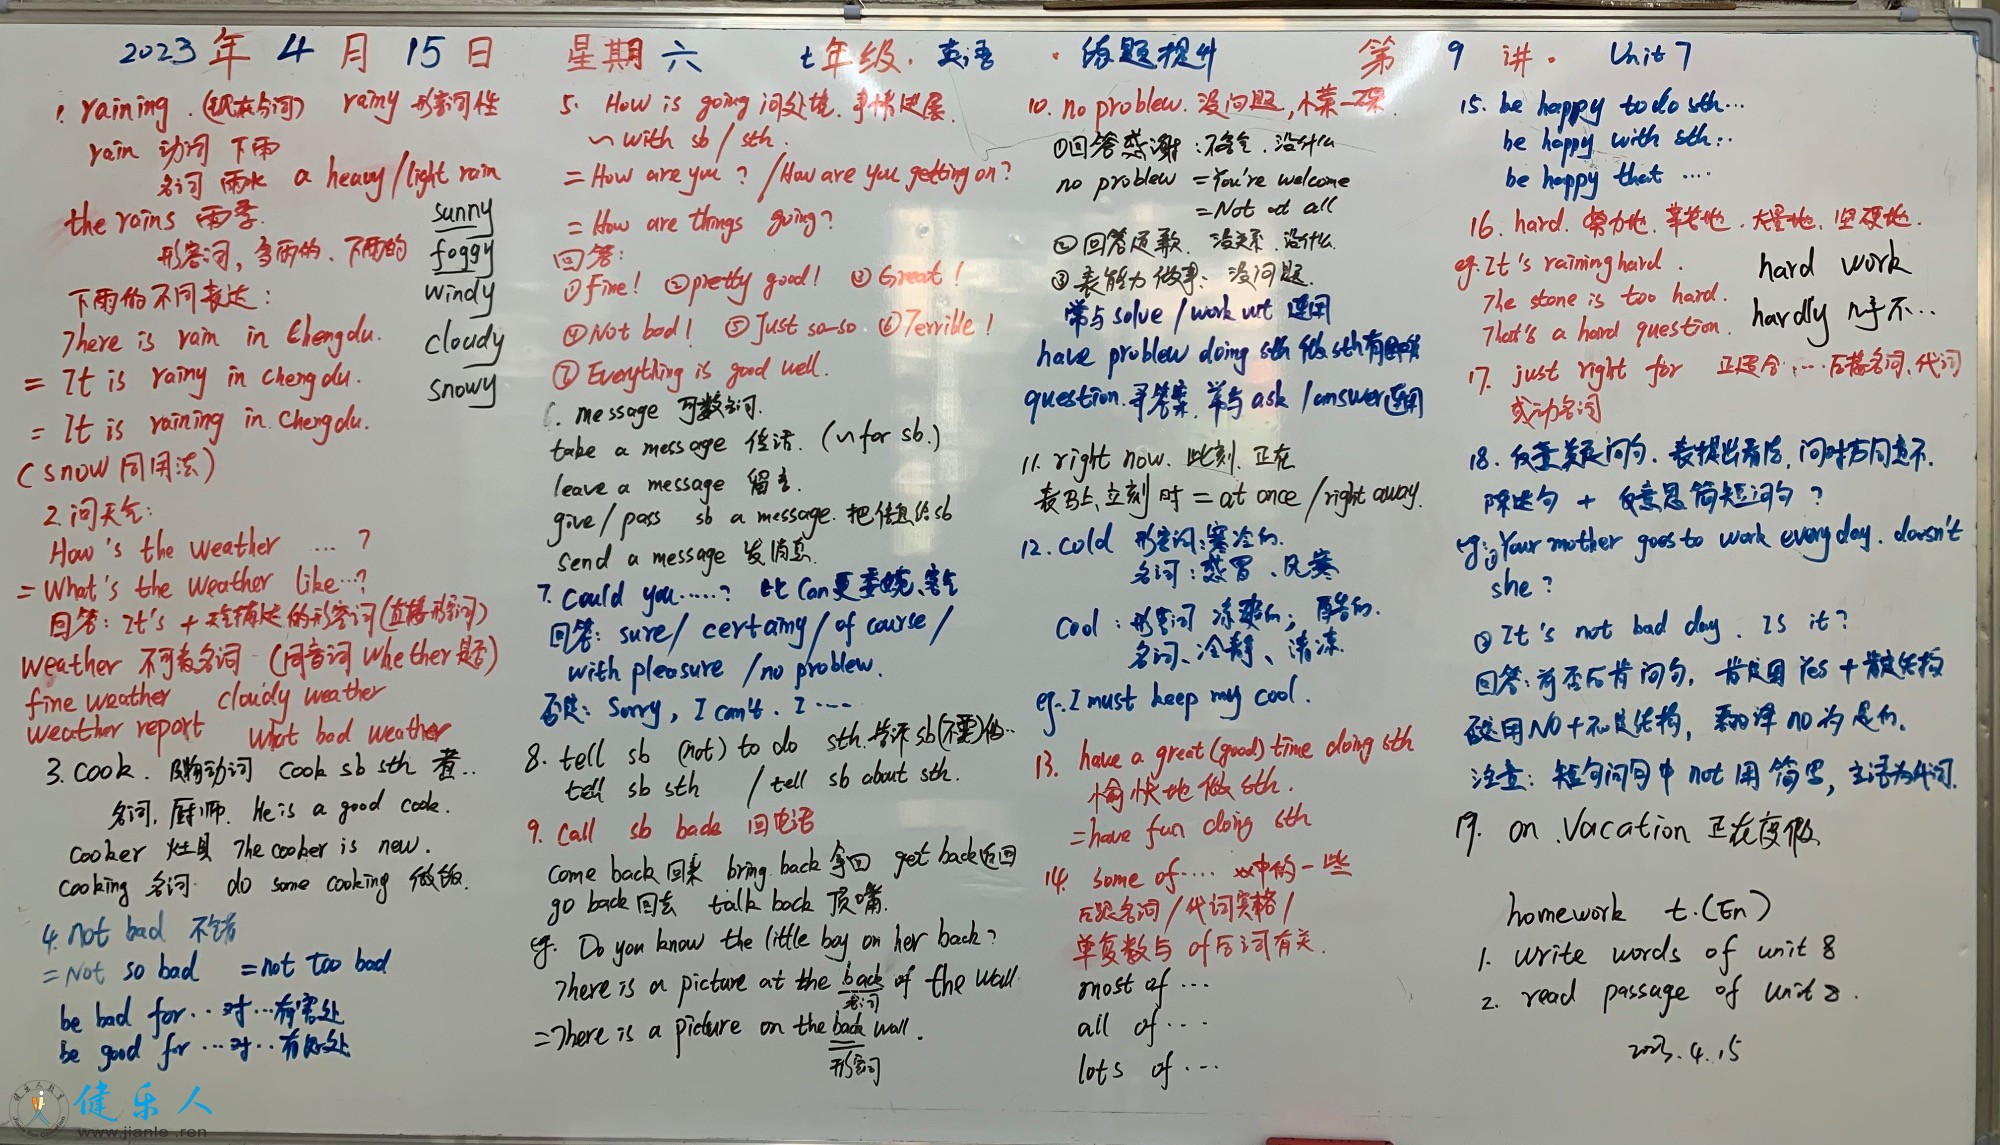 2023年4月15日 星期六 七年级.英语 · 练题提升 第9讲. Unit 7
1. raining.(现在分词) rainy 形容词性
rain 动词 下雨
名词 雨水 a heavy/light rain
the rains 雨季.
形容词,多雨的、下雨的
sunny
foggy
windy
cloudy
snowy
下雨的不同表达:
There is rain in Chengdu.
= It is rainy in chengdu.
= It is raining in chengdu.
(snow同用法)
2.问天气:
How's the weather ... ?
= What's the weather like...?
回答: It's + 描述的形容词(直接形容词)
weather 不可数名词 (同音词 whether 是否)
fine weather cloudy weather
weather report what bad weather
3. cook. 动词 cook sb sth 煮..
名词,厨师. He is a good cook.
cooker 灶具 The cooker is new.
cooking 名词 do some cooking 做饭.
4. not bad 不错
= Not so bad = not too bad
be bad for...对...有害处
be good for ...对..有好处
5. How is going 问处境.事情进展.
~ with sb/sth.
= How are you? /How are you getting on?
= How are things going?
回答:
①fine! ②pretty good! ③Great!
④Not bad! ⑤Just so-so ⑥Terrible!
⑦Everything is good well.
6. message 可数名词.
take a message 传话. (~for sb.)
leave a message 留言.
give/pass sb a message. 把信息给sb
send a message 发消息
7. Could you......? 比Can更委婉、客气
回答: sure/ certainy/of course/
with pleasure /no problew.
否定: Sorry, I can't. I ....
8. tell sb (not) to do sth.告诉sb(不要)做..
tell sb sth / tell sb about sth.
9. Call sb back 回电话
come back回来 bring back拿回 get back返回
go back回去 talk back 顶嘴.
eg. Do you know the little boy on her back?
There is a picture at the back of the wall.
名词
=There is a picture on the back wall.
形容词
10. no problew.没问题,小菜一碟.
①回答感谢:不客气.没什么
no problew =You're welcome
=Not at all
②回答道歉.没关系.没什么.
③表能力做事、没问题.
常与solve/work out 连用
have problew doing sth 做sth有困难
question.寻答案.常与ask/answer连用
11. right now. 此刻.正在
表马上、立刻时 = at once /right away.
12. cold 形容词:寒冷的.
名词:感冒、风寒
cool: 形容词 凉爽的;酷的.
名词、冷静、清凉.
eg. I must keep my cool.
13. have a great(good) time doing sth
愉快地做sth.
=have fun doing sth
14. some of.... ××中的一些
后跟名词/代词宾格/
单复数与of后词有关.
most of ...
all of ....
lots of ...
15. be happy to do sth...
be happy with sth..
be happy that ....
16. hard. 努力地.辛苦地.大量地.坚硬地.
eg. It's raining hard.
The stone is too hard.
That's a hard question.
hard work
hardly 几乎不...
17. just right for 正适合....后接名词、代词
或动名词
18. 反意疑问句.表提出看法,问对方同意不.
陈述句 + 反意思简短问句?
eg:①Your mother goes to work every day. doesn't
she?
②It's not bad day. Is it?
回答:前否后肯问句, 肯定用Yes+肯定结构
否定用NO+否定结构, 翻译no为是的.
注意: 短句问句中not用简写,主语为代词.
19. on vacation 正在度假
homework t.(En)
1. write words of unit 8
2. read passage of unit 8.
2023.4.15
健乐人
www.jianle.ren